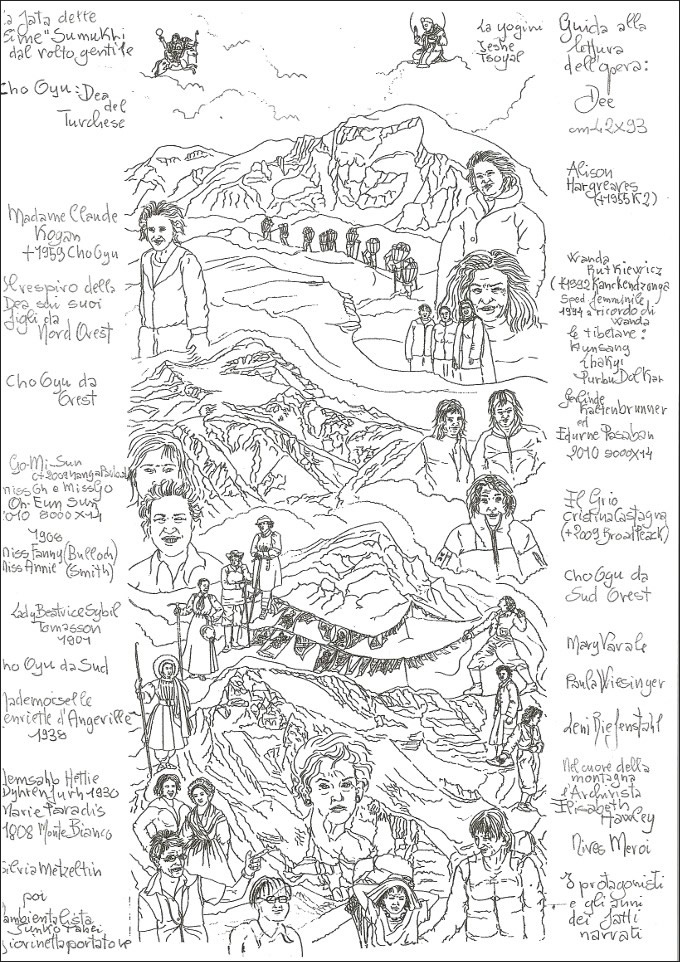 a fata delle
Cime" Sumukhi
dal volto gentile
Cho Oyu: Dea
del
Turchese
Madame Claude
Kogan
+1959 Cho Oyu
Il respiro della
Dea sui suoi
figli da
Nord Ovest
Cho Oyu da
Ovest
Go-Mi-Sun
(+2009 Nanga
miss Oh e Miss Go
Oh-Eun Sun
2010 8000X14
1908
miss Fanny (Bulloch)
Miss Annie (Smith)
Lady Beatrice Sybil
Tomasson
1901
ho Oyu da Sud
Mademoiselle
enriette d'Angeville
1938
Memsahb Hettie
Dyhrenfurth 1930
Marie Paradis
1808 Monte Bianco
Silvia Metzeltin
poi
l'ambientalista
Junko Tabei
giovinetta portatore
La yogini
Jeshe
Tsoyal
Guida alla
lettura
dell'opera:
Dee
cm 42x93
Alison
Hargreaves
(+1955 K2)
Wanda
Rutkiewicz
(+1992 Kanckendzonga
Sped. femminile
1994 a ricordo di
Wanda
le tibetane:
Kunsang
Lhakyi
Purbu Dolkar
Gerlinde
Kaltenbrunner
ed
Edurne Pasaban
2010 8000x14
Il Grio
Cristina Castagna
(+2009 Broad Peack)
Cho Oyu da
Sud Ovest
Mary Varale
Paula Wiesinger
Leni Riefenstahl
Nel cuore della
montagna
l'Archivista
Elisabeth
Hawley
Nives Meroi
I protagonisti
e gli anni
dei fatti
narrati